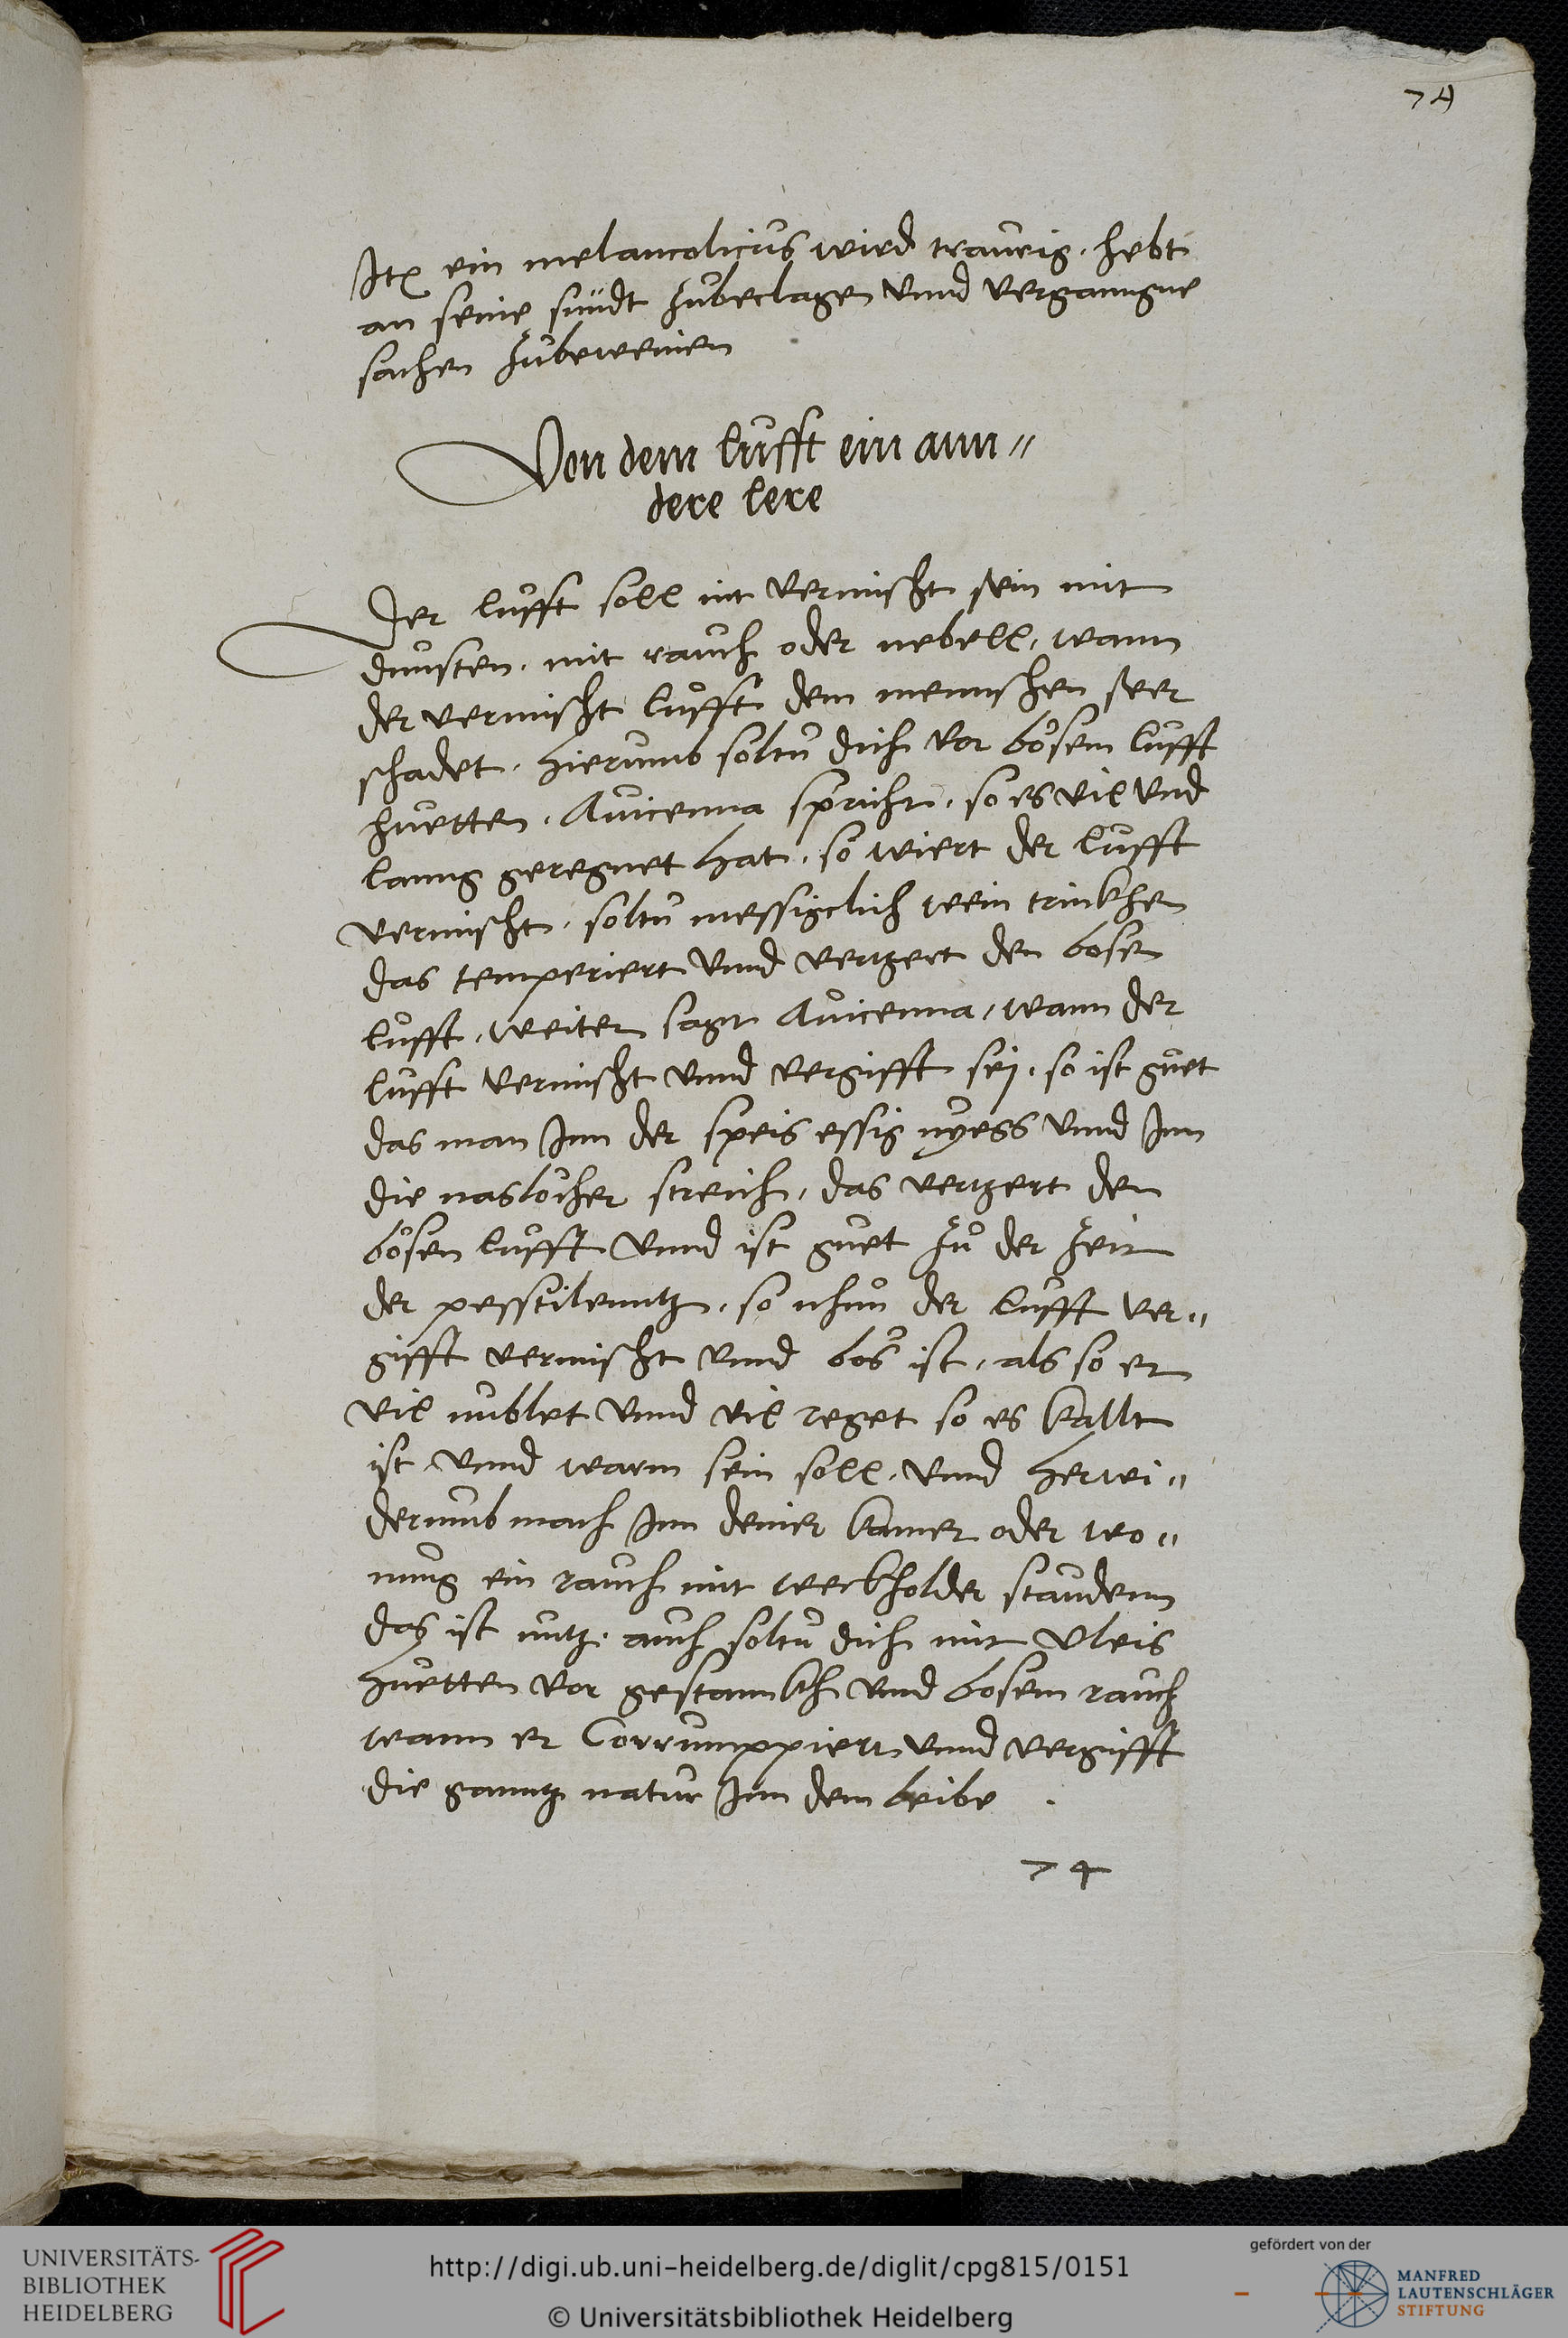 74
Itē ein melancolicus wird traurig, hebt
an seine sündt zubeclagen vnnd vergangne
sachen zubeweinen
Von dem lufft ein ann=
dere lere
Der lufft soll nit vermischt sein mit
dunsten, mit rauch oder nebell, wann
der vermischt lufft dem mennschen seer
schadet, hierumb soltu dich vor bösem lufft
huetten, Auicenna spricht, so es vil vnd
lanng geregnet hat, so wiert der lufft
vermischt, soltu messigclich wein trinckhen
das temperiert vnnd verzert den bosen
lufft, weiter sagt Auicenna, wann der
lufft vermischt vnnd vergifft sej, so ist guet
das man Inn der speis essig nyess vnnd Inn
die naslöcher streich, das verzert den
bösen lufft vnnd ist guet zu der zeit
der pesstilenntz, so nhun der lufft ver=
gifft vermischt vnnd bös ist, als so er
vil nublet vnnd vil reget so es kallt
ist vnnd warm sein soll, vnnd herwi=
derumb mach Inn deiner kamer oder wo=
nung ein rauch mit weckholder staudenn
das ist nutz, auch soltu dich mit vleis
huetten vor gestannckh vnnd bosem rauch
wann er Corrumppiert vnnd vergifft
die ganntz natur Inn dem leibe .
74
UNIVERSITÄTS-
BIBLIOTHEK
HEIDELBERG
http://digi.ub.uni-heidelberg.de/diglit/cpg815/0151
© Universitätsbibliothek Heidelberg
gefördert von der
MANFRED
LAUTENSCHLÄGER
STIFTUNG